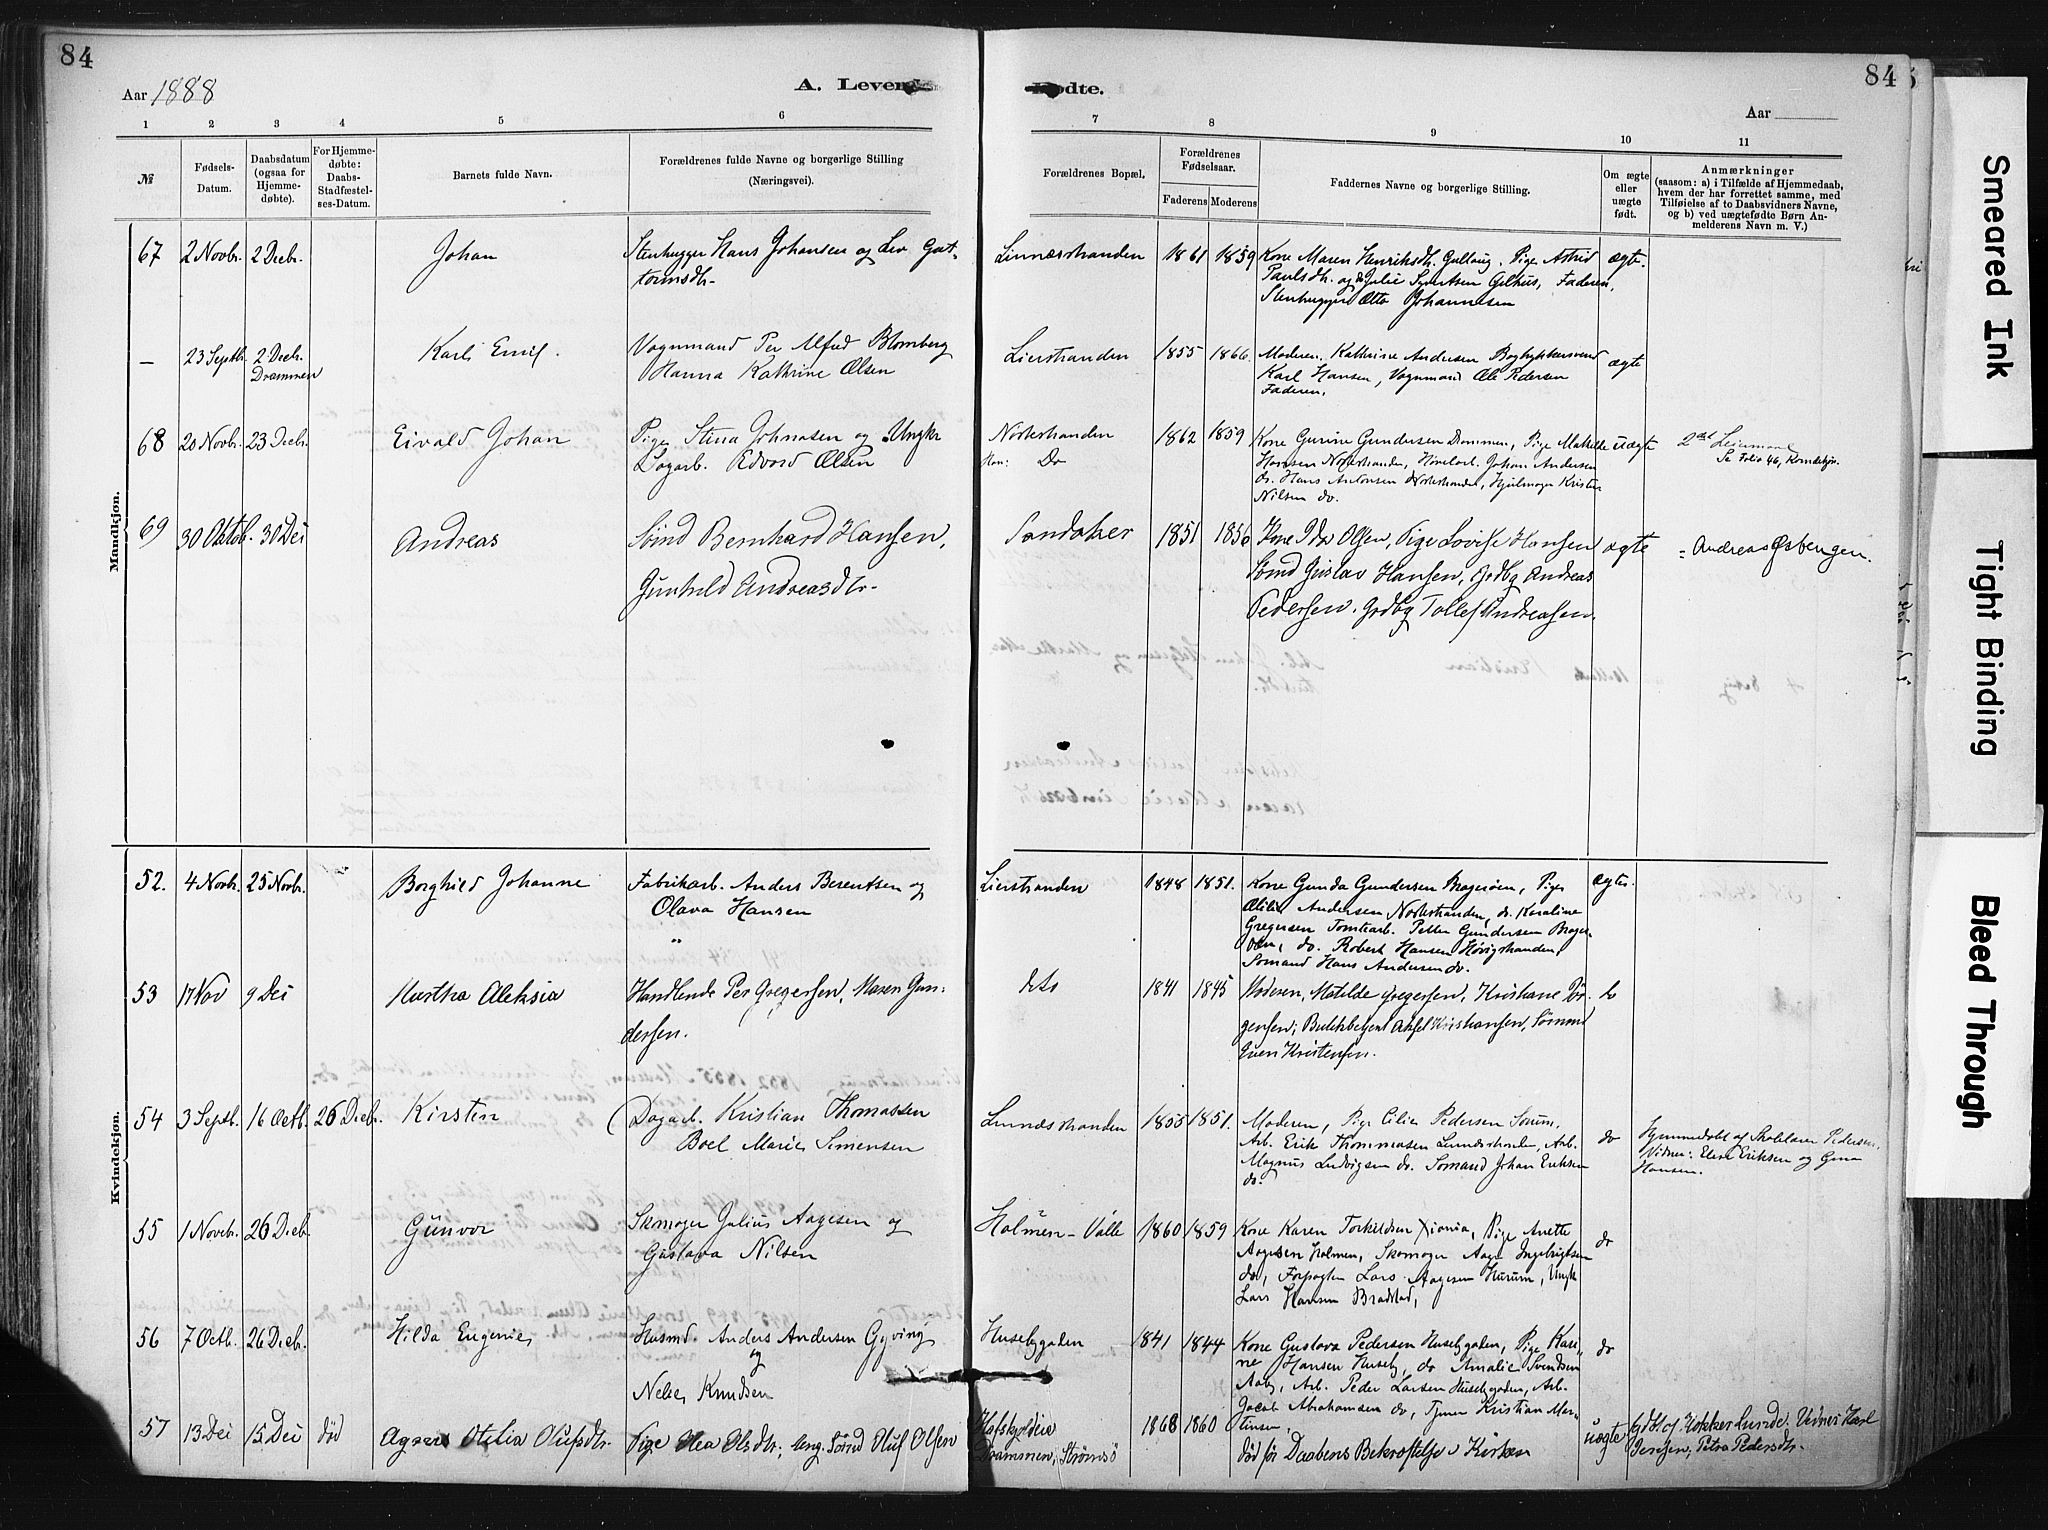 84
Aar 1888
A. Levende
Fødte.
84
Aar
1 2 3 4 5 6 7 8 9 10 11
№
Fødsels-
Datum.
Daabsdatum
(ogsaa for
Hjemme-
døbte).
For Hjemme-
døbte:
Daabs-
Stadfæstel-
ses-Datum.
Barnets fulde Navn.
Forældrenes fulde Navne og borgerlige Stilling
(Næringsvei).
Forældrenes Bopæl.
Forældrenes
Fødselsaar.
Faderens Moderens
Faddernes Navne og borgerlige Stilling.
Om ægte
eller
uægte
født.
Anmærkninger
(saasom: a) i Tilfælde af Hjemmedaab,
hvem der har forrettet samme, med
Tilføielse af to Daabsvidners Navne,
og b) ved uægtefødte Børn An-
melderens Navn m. V.)
Mandkjøn.
67 2 Novbr. 2 Decbr. Johan Stenhugger Hans Johansen og Liv Gut-
tormsdtr.
Linnæsstranden 1861 1859 Kone Maren Henriksdtr. Gullaug, Pige Astrid ægte.
Paulsdtr. og do Julie Syvertsen Gilhus, Faderen,
Stenhugger Otto Johannesen
— 23 Septb. 2 Decbr. Karl Emil. Vognmand Per Alfred Blomberg
Drammen Hanna Kathrine Olsen
Lierstranden 1855 1866 Moderen, Kathrine Andersen Bogtykkersvend ægte
Karl Hansen, Vognmand Ole Pedersen
Faderen.
68 20 Novbr. 23 Decbr. Eivald Johan Pige Stina Johnasen og Ungkr
Dagarb. Edvard Olsen
Nøstestranden 1862 1859 Kone Gurine Gundersen Drammen, Pige Mathilde uægte 2det Leiermaal
Do Hansen Nøstestranden, Høvelarb. Johan Andersen Se Folio 46, Kvindekjøn.
do. Hans Antonsen Nøstestranden, Hjulmager Kristen
Nilsen do.
69 30 Oktob. 30 Dec Andreas Smd Bernhard Hansen,
Gunhild Andreasdtr.
Sandaker 1851 1856 Kone Ida Olsen, Pige Lovise Hansen ægte = Andreas Øsbengen.
Smd Gustav Hansen, Grdbg Andreas
Pedersen. Grdbg Tollef Andreassen.
Kvindekjøn.
52. 4 Novbr. 25 Novbr. Borghild Johanne Fabrikarb. Anders Berentsen og
Olava Hansen
Lierstranden 1848 1851. Kone Gunda Gundersen Bragerøen, Pige ægte.
Otilie Andersen Nøstestranden, do. Karoline
Gregersen Tomtearb. Petter Gundersen Brager-
øen, do. Robert Hansen Høvigstranden,
Sømand Hans Andersen do.
53 17 Nov 9 Dec Martha Aleksia Handlende Per Gregersen, Maren Gun-
dersen.
dito 1841 1845 Moderen, Matilde Gregersen, Kristiane Jør-
gensen; Butikbetjent Aksel Kristiansen, Sømand
Even Kristensen.
54 3 Septb. 16 Octb. 26 Decbr. Kirsten Dagarb. Kristian Thomassen
Boel Marie Simensen
Linnæsstranden 1855 1851. Moderen, Pige Cilia Pedersen Sørum, do Hjemmedøbt af Skolelærer Pedersen.
Arb. Erik Thommasen Linnæsstranden, Arb. Vidner: Elise Eriksen og Gina
Magnus Ludvigsen do. Sømand Johan Eriksen Hansen.
do.
55 1 Novbr. 26 Decb. Gunvor Skomager Julius Aagesen og
Gustava Nilsen
Holmen-Valle 1860 1859 Kone Karen Torkildsen Xiania, Pige Anette do
Aagesen Holmen, Skomager Aage Ingebrigtsen
do, Forpagter Lars Aagesen Hurum, Ungk
Lars Hansen Bradstad,
56 7 Octb. 26 Decb. Hilda Eugenie Husmd. Anders Andersen Gyving
og
Nele Knudsen
Husebygaden 1841 1844 Kone Gustava Pedersen Husebygaden, Pige Kari- do
ne Hansen Huseby, do Amalie Svendsen
Aaby, Arb. Peder Larsen Husebygaden, Arb.
Jacob Abrahamsen do, Tjener Kristian Mar-
tinsen.
57 13 Dec 15 Dec død Agnes Otilia Olufsdtr. Pige Olea Olsdtr; Ung. Smd Oluf Olsen
Drammen, Strømsø 1868 1860 død før Daabens Bekræftelse i Kirken uægte gdbt. af Kirkker Lunde. Vidner: Karl
Jensen, Petra Pedersdtr.
Smeared Ink
Tight Binding
Bleed Through